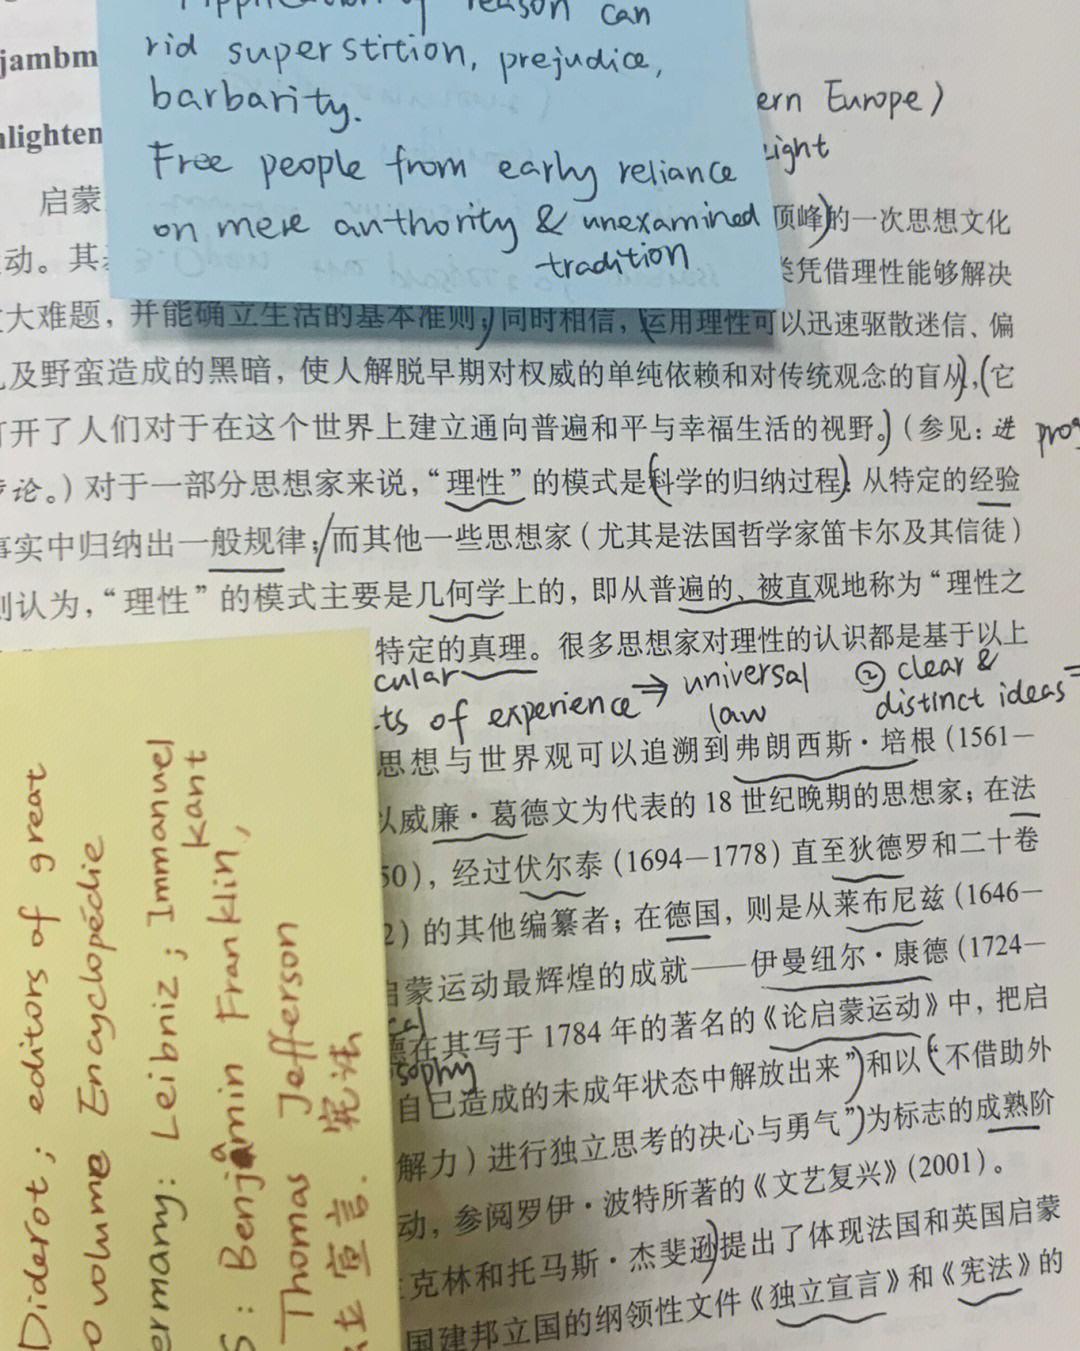 reason can
rid superstition, prejudice,
barbarity.
Free people from early reliance
on mere authority & unexamined
tradition
jambm
nlighten
ern Europe)
light
启蒙
顶峰)的一次思想文化
动。其
类凭借理性能够解决
大难题，并能确立生活的基本准则；同时相信，运用理性可以迅速驱散迷信、偏
及野蛮造成的黑暗，使人解脱早期对权威的单纯依赖和对传统观念的盲从，(它
打开了人们对于在这个世界上建立通向普遍和平与幸福生活的视野。)(参见：进
prog
论。）对于一部分思想家来说，“理性”的模式是(科学的归纳过程)：从特定的经验
事实中归纳出一般规律；/而其他一些思想家（尤其是法国哲学家笛卡尔及其信徒）
则认为，“理性”的模式主要是几何学上的，即从普遍的、被直观地称为“理性之
特定的真理。很多思想家对理性的认识都是基于以上
cular
ts of experience ⇒ universal law
② clear & distinct ideas
思想与世界观可以追溯到弗朗西斯·培根（1561—
以威廉·葛德文为代表的 18 世纪晚期的思想家；在法
50），经过伏尔泰（1694—1778）直至狄德罗和二十卷
2）的其他编纂者；在德国，则是从莱布尼兹（1646—
启蒙运动最辉煌的成就——伊曼纽尔·康德（1724—
cal
德在其写于 1784 年的著名的《论启蒙运动》中，把启
sophy
自己造成的未成年状态中解放出来”)和以(“不借助外
解力）进行独立思考的决心与勇气”)为标志的成熟阶
动，参阅罗伊·波特所著的《文艺复兴》（2001）。
克林和托马斯·杰斐逊)提出了体现法国和英国启蒙
国建邦立国的纲领性文件《独立宣言》和《宪法》的
Diderot; editors of great
o volume Encyclopédie
ermany: Leibniz; Immanuel
kant
S: Benjamin Franklin,
Thomas Jefferson
宣言. 宪法